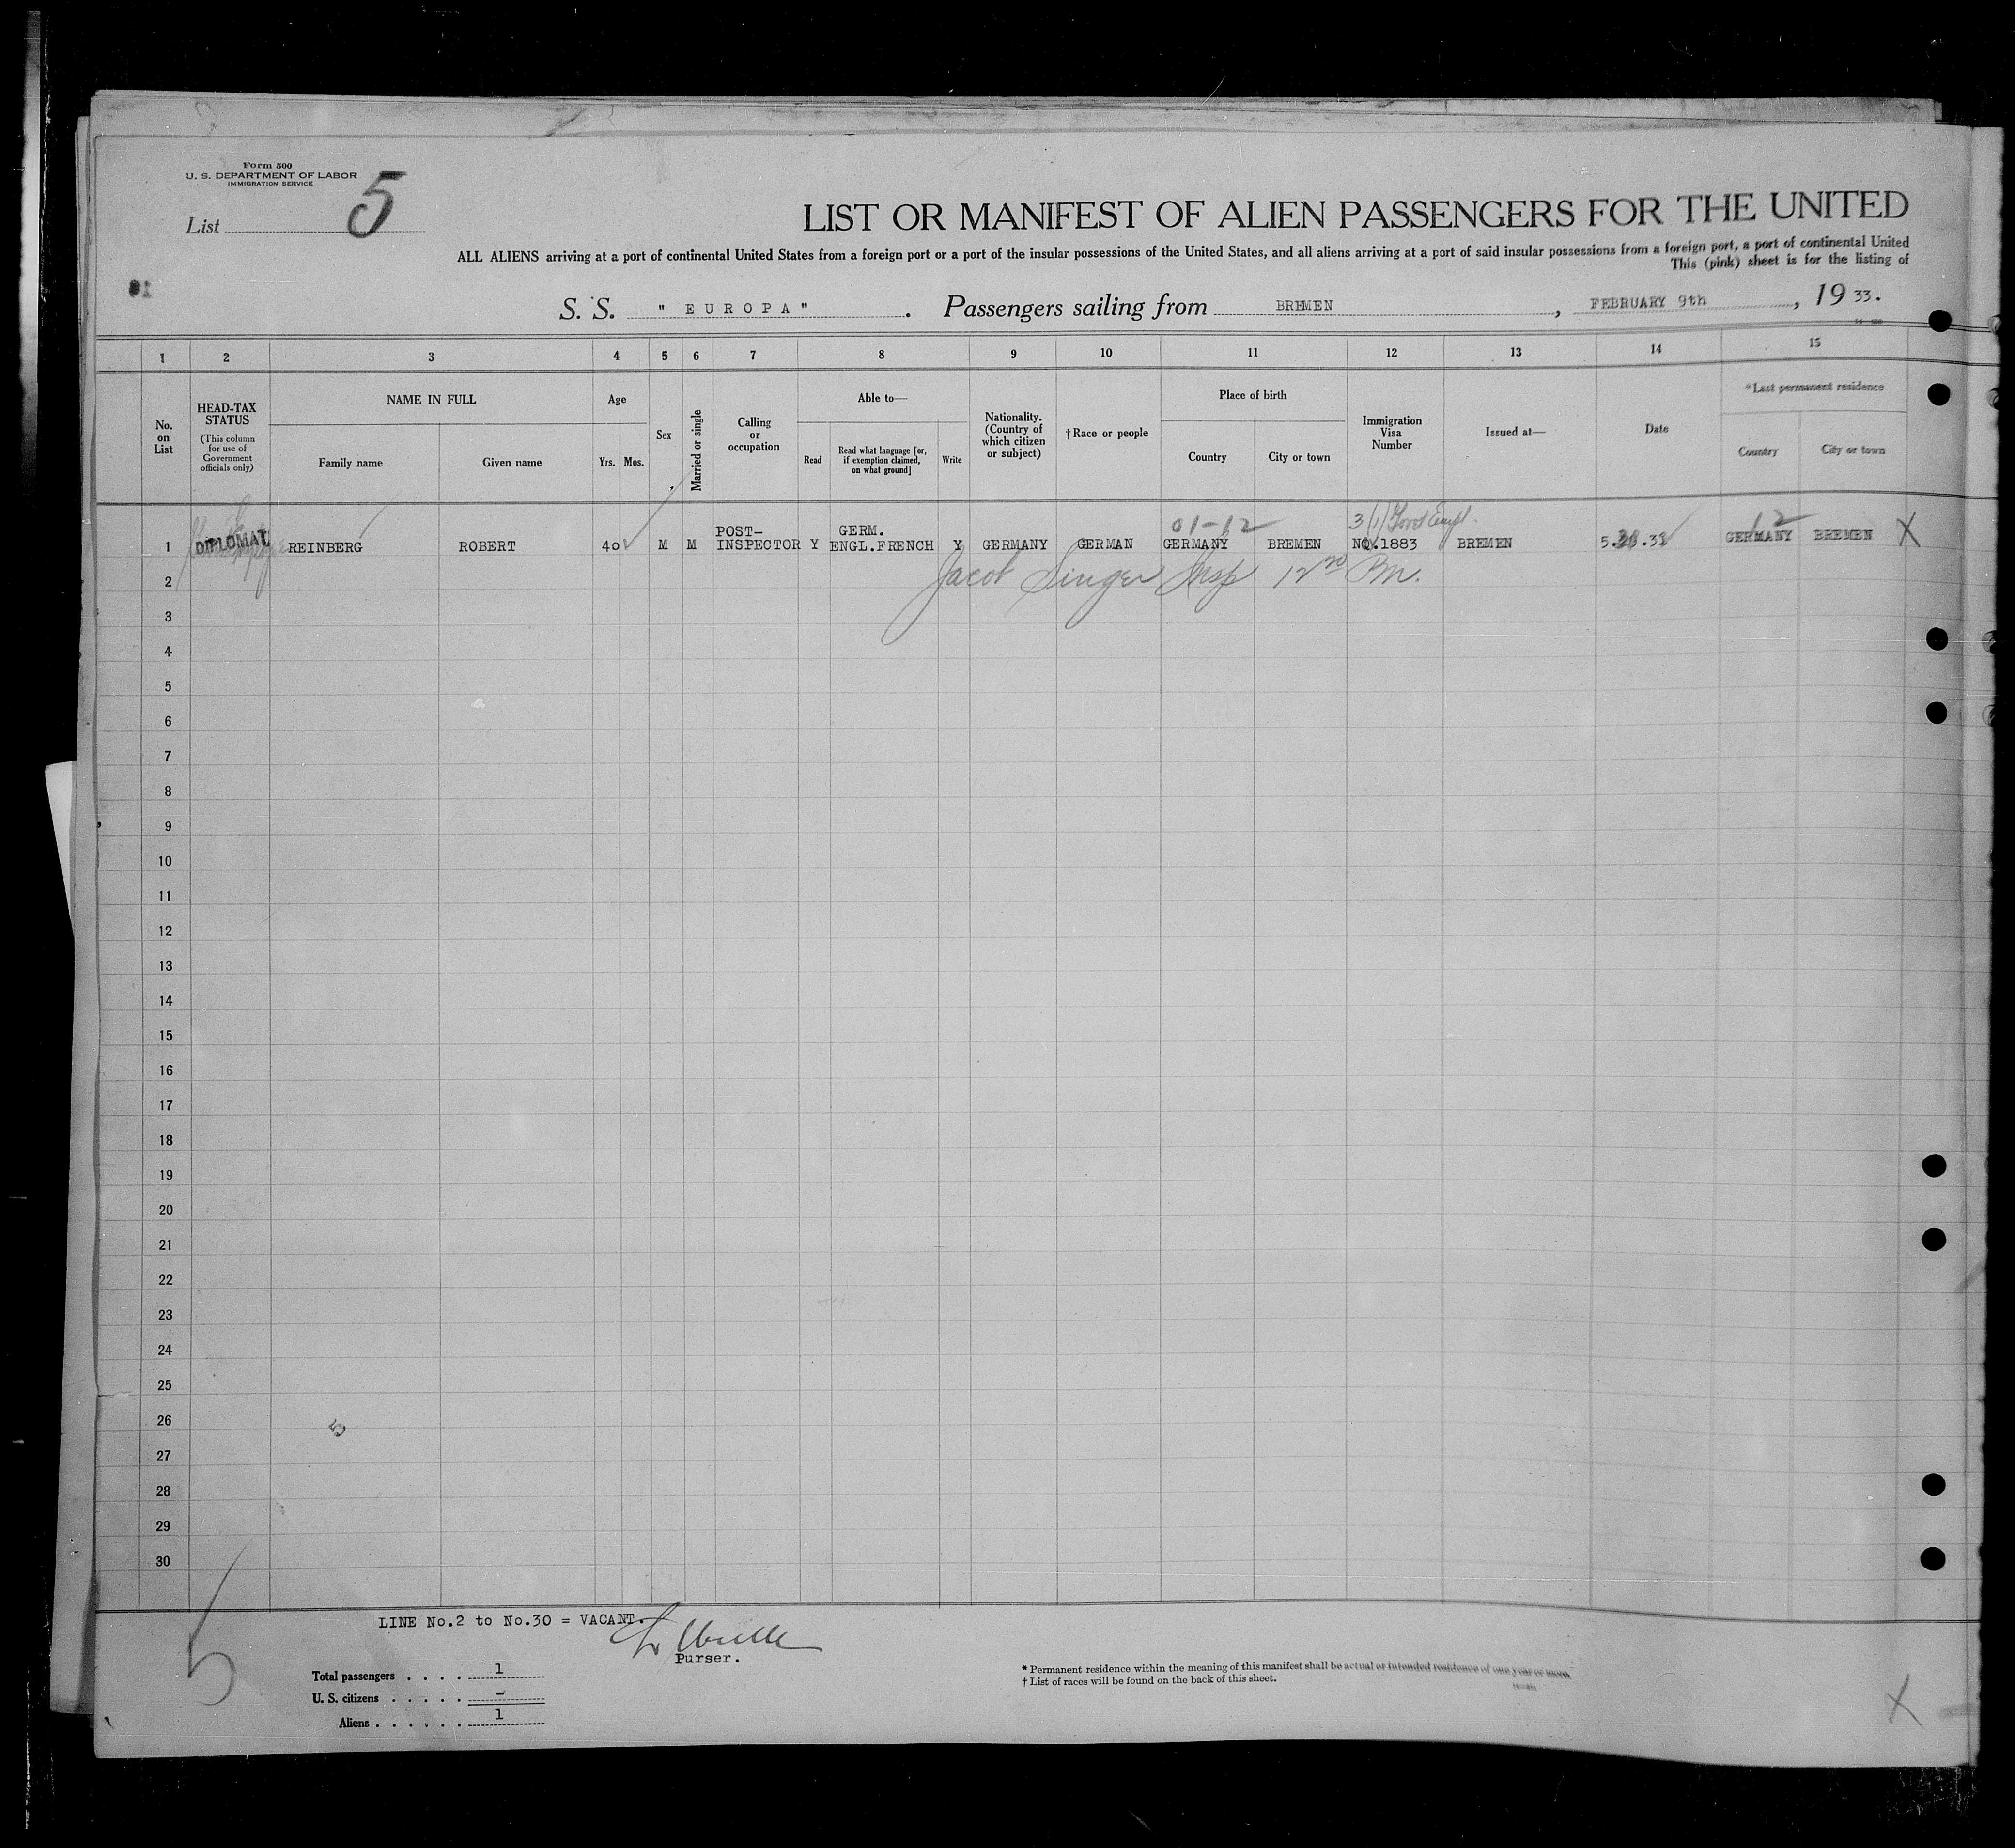 Form 500
U. S. DEPARTMENT OF LABOR
IMMIGRATION SERVICE
List 5
LIST OR MANIFEST OF ALIEN PASSENGERS FOR THE UNITED
ALL ALIENS arriving at a port of continental United States from a foreign port or a port of the insular possessions of the United States, and all aliens arriving at a port of said insular possessions from a foreign port, a port of continental United
This (pink) sheet is for the listing of
S. S. " EUROPA " . Passengers sailing from BREMEN , FEBRUARY 9th , 19 33.
1 2 3 4 5 6 7 8 9 10 11 12 13 14 15
No. on List
HEAD-TAX STATUS
(This column for use of Government officials only)
NAME IN FULL
Family name Given name
Age
Yrs. Mos.
Sex
Married or single
Calling or occupation
Able to—
Read
Read what language [or, if exemption claimed, on what ground]
Write
Nationality. (Country of which citizen or subject)
† Race or people
Place of birth
Country City or town
Immigration Visa Number
Issued at—
Date
*Last permanent residence
Country City or town
01-12 3(1) Govt Empl. 12
1 DIPLOMAT REINBERG ROBERT 40 M M POST-INSPECTOR Y GERM. ENGL.FRENCH Y GERMANY GERMAN GERMANY BREMEN NQ.1883 BREMEN GERMANY BREMEN X
2 Jacob Singer Insp 12
3
4
5
6
7
8
9
10
11
12
13
14
15
16
17
18
19
20
21
22
23
24
25
26
27
28
29
30
5
LINE No.2 to No.30 = VACANT.
Purser.
5
Total passengers . . . . 1
U. S. citizens . . . . . . –
Aliens . . . . . . 1
* Permanent residence within the meaning of this manifest shall be actual or intended residence of one year or more.
† List of races will be found on the back of this sheet.
X